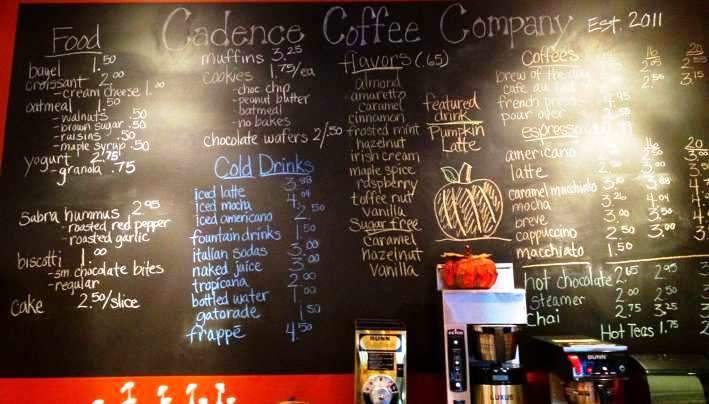 Cadence Coffee Company Est. 2011
Food
bagel 1.50
croissant 2.00
-cream cheese 1.00
oatmeal 1.50
-walnuts .50
-brown sugar .50
-raisins .50
-maple syrup .50
yogurt 2.75
-granola .75
Sabra hummus 2.95
-roasted red pepper
-roasted garlic
biscotti 1.00
-sm chocolate bites
-regular
cake 2.50/slice
muffins 3.25
cookies 1.75/ea
-choc chip
-peanut butter
-oatmeal
-no bakes
chocolate wafers 2/.50
Cold Drinks
iced latte
iced mocha
iced americano 2.50
fountain drinks 1.50
italian sodas 3.00
naked juice 3.00
tropicana 2.00
bottled water 1.00
gatorade 1.50
frappé 4.50
flavors (.65)
almond
amaretto
caramel
cinnamon
frosted mint
hazelnut
irish cream
maple spice
raspberry
toffee nut
vanilla
Sugar free
Caramel
hazelnut
Vanilla
featured
drink
Pumpkin
Latte
Coffees 16 20
brew of the day
cafe au lait 3.15
french press
pour over
espresso
americano
latte
caramel macchiato
mocha
breve 3.00 3.50
cappuccino 2.50 3.00
macchiato 1.50
hot chocolate 2.65 2.95
steamer 2.00 2.50
chai 2.75 3.25
Hot Teas 1.75 2
BUNN
LUXUS
BUNN